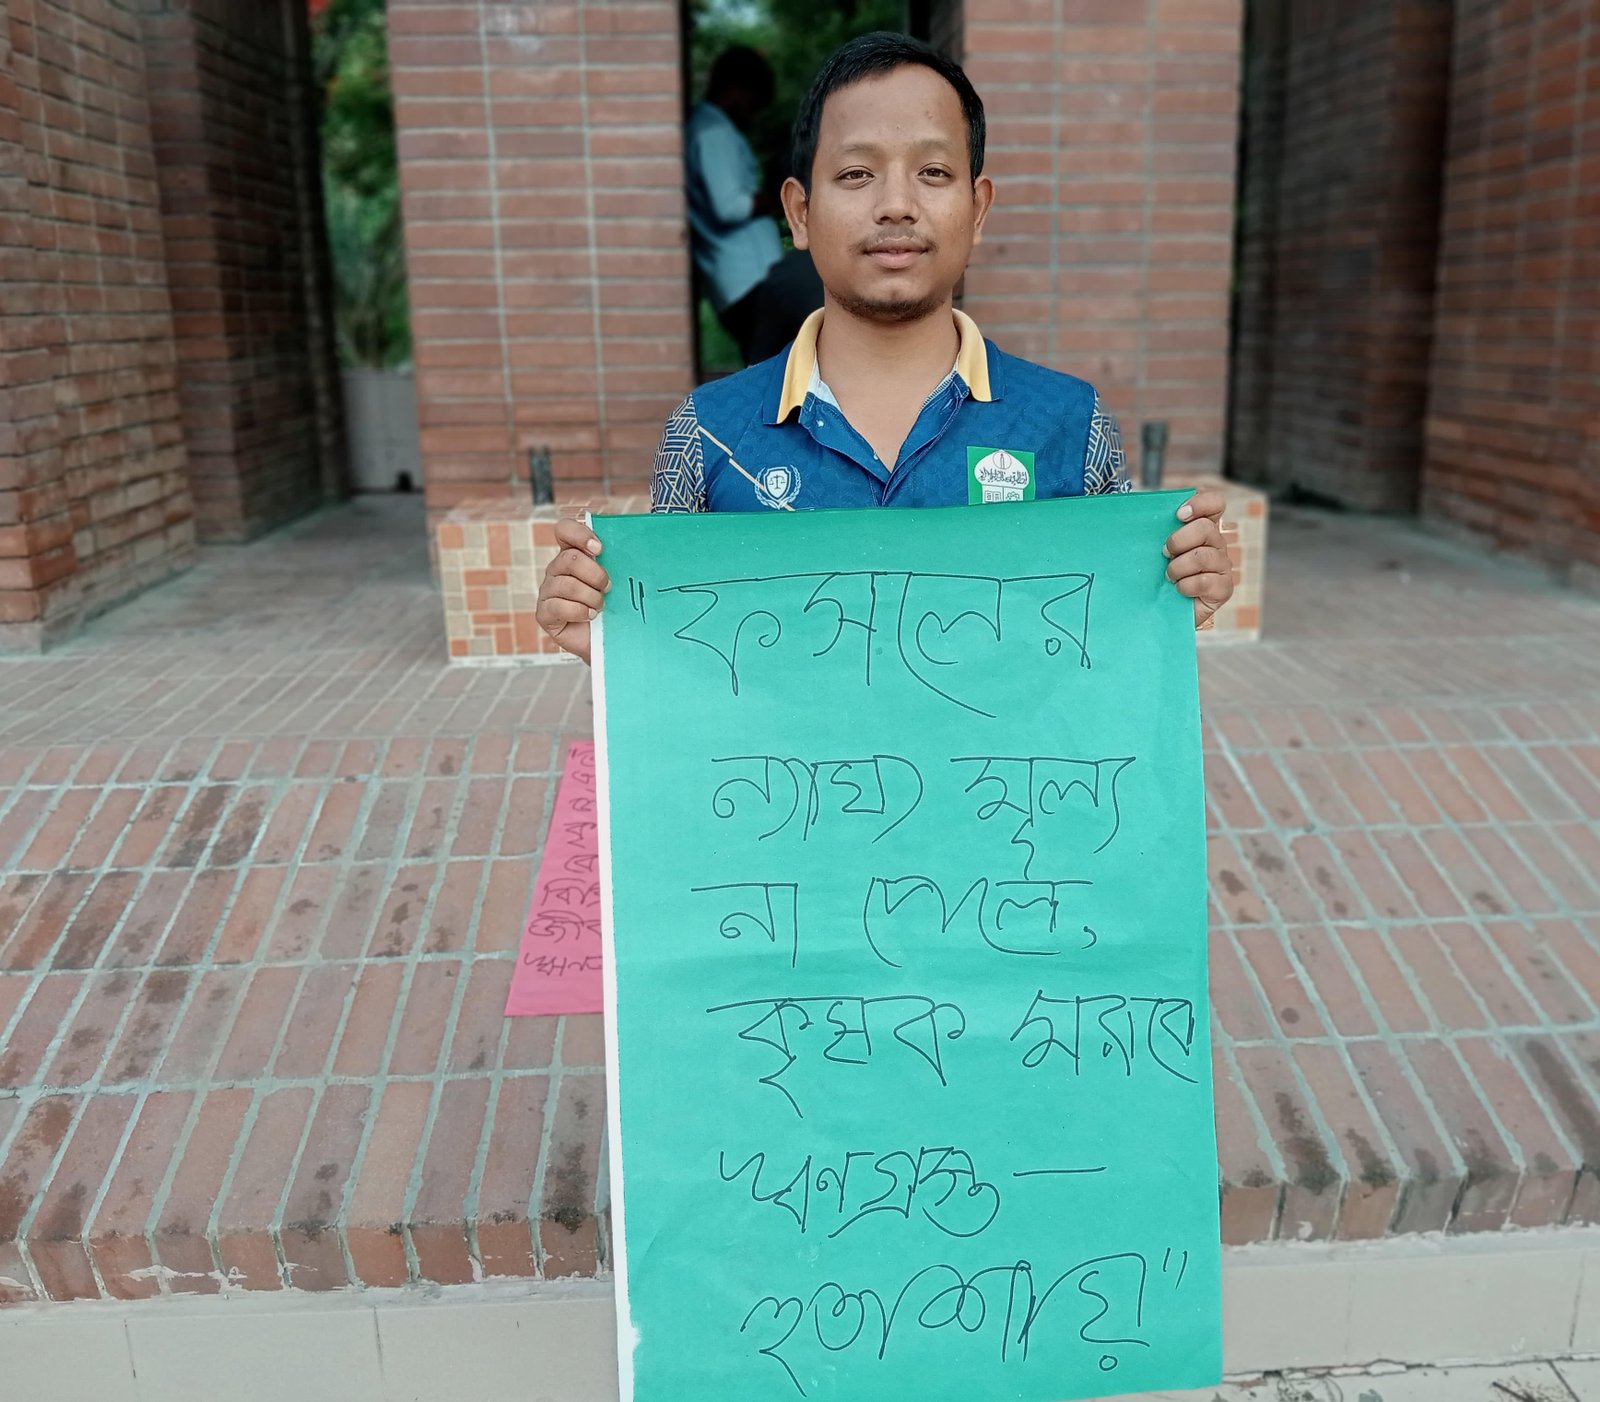 "ফসলের
ন্যায্য মূল্য
না পেলে,
কৃষক মরবে
ঋণগ্রস্ত —
হতাশায়"